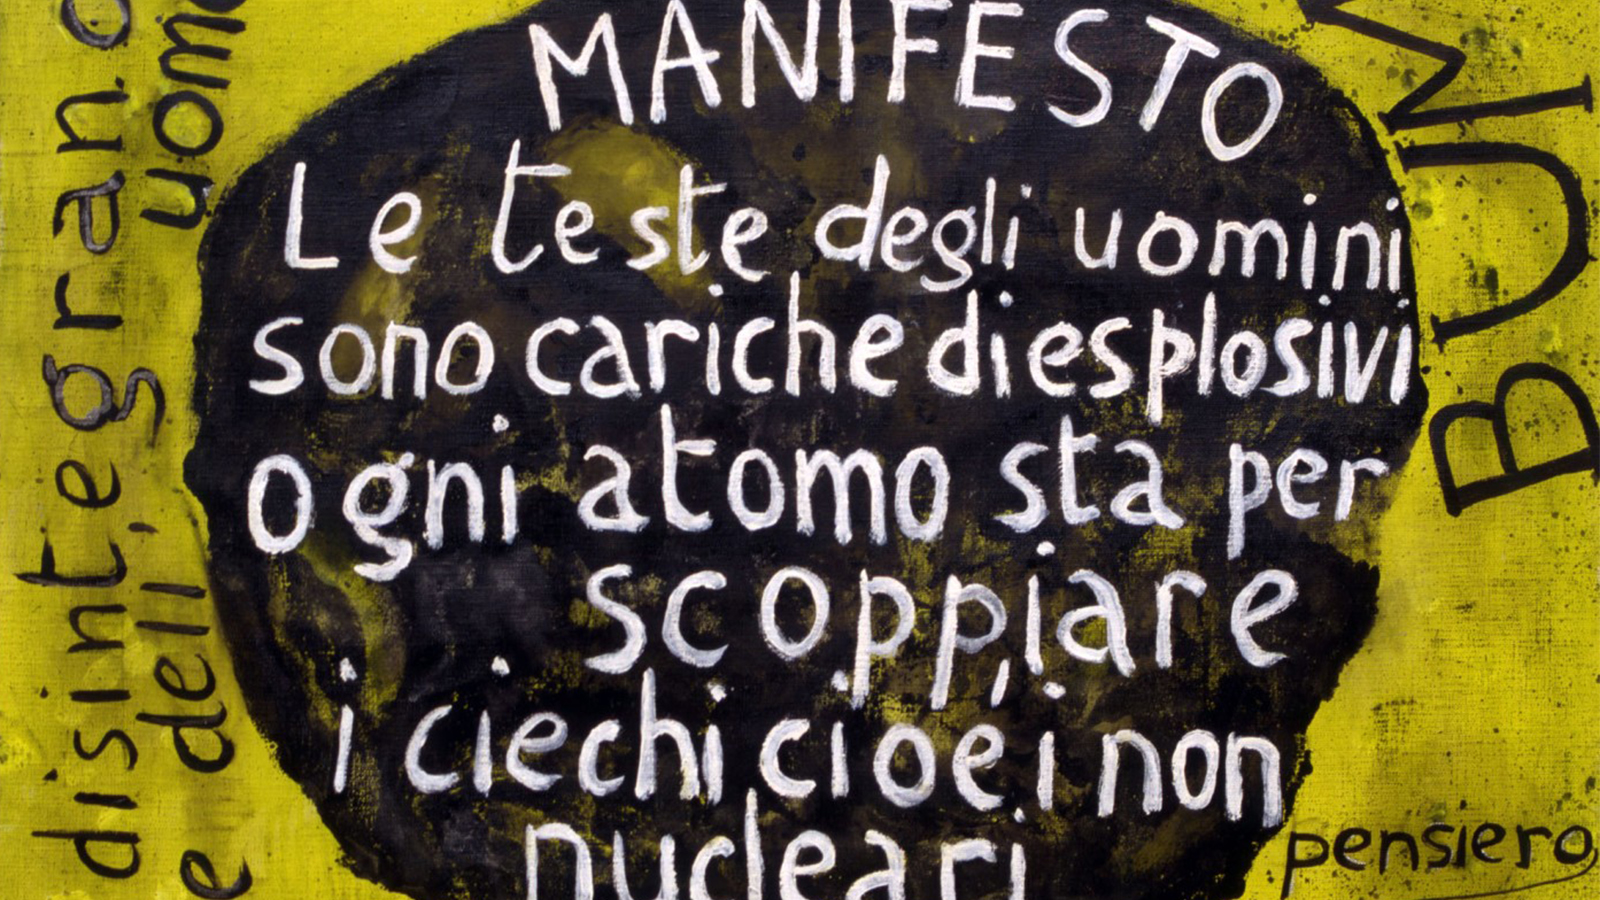 MANIFESTO
Le teste degli uomini
sono cariche di esplosivi
ogni atomo sta per
scoppiare
i ciechi cioè i non
nucleari
disintegrano
e dell'uomo
BUM
pensiero